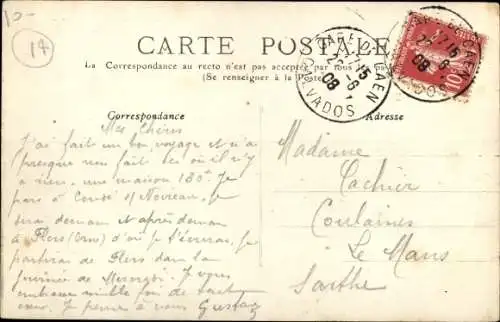 10-
14
CARTE POSTALE
La Correspondance au recto n'est pas acceptée par tous les pays
(Se renseigner à la Poste)
GARE DE CAEN
17 15
22 -6
08
CALVADOS
GARE DE CAEN
17 15
22 -6
08
CALVADOS
POSTES
10
Correspondance
Adresse
Mes Chéres
J'ai fait un bon voyage et n'ai
presque rien fait ici où il n'y
a rien, une maison 180f. Je
pars à Condé s/ Noireau, je
serai demain et après demain
à Flers (Orne) d'où je t'écrirai, je
partirai de Flers dans la
journée de Mercredi. Je vous
embrasse mille fois de tout
cœur. Je pense à vous Gustave
Madame
Cachier
Coulaines
Le Mans
Sarthe